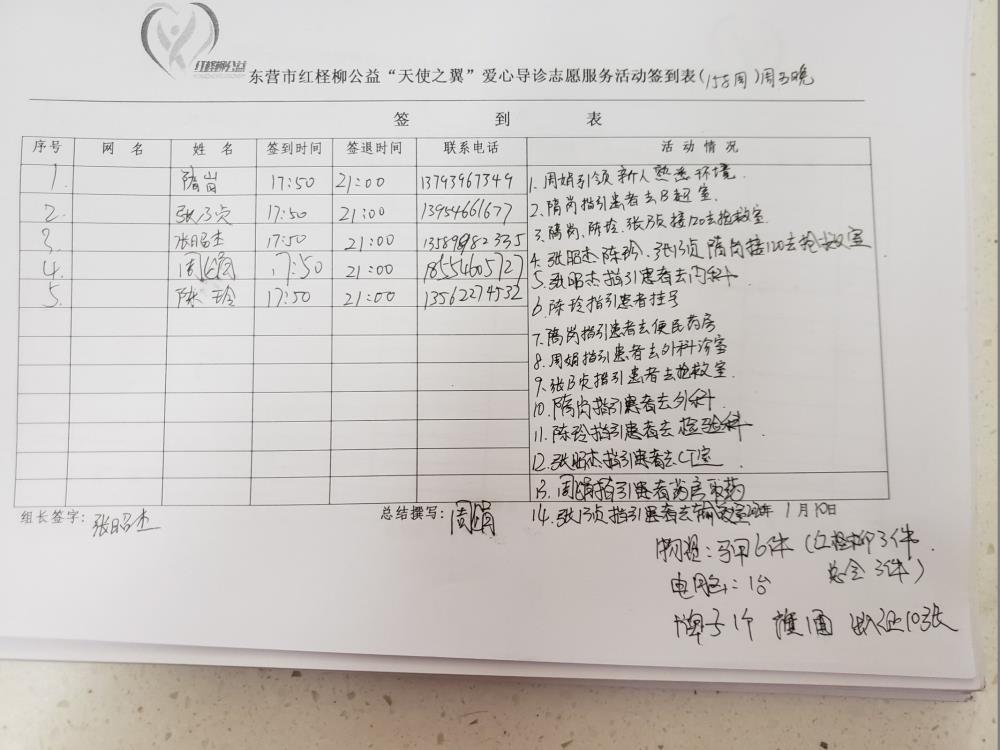 红柽柳公益
东营市红柽柳公益“天使之翼”爱心导诊志愿服务活动签到表(158周)周五晚
签 到 表
序号 网 名 姓 名 签到时间 签退时间 联系电话 活 动 情 况
1. 隋岗 17:50 21:00 13793967349
2. 张乃贞 17:50 21:00 13954661677
3. 张昭杰 17:50 21:00 13589982335
4. 周娟 17:50 21:00 18554605727
5. 陈玲 17:50 21:00 13562274532
1. 周娟引领新人熟悉环境.
2. 隋岗指引患者去B超室.
3. 隋岗、陈玲、张乃贞接120去抢救室
4. 张昭杰、陈玲、张乃贞、隋岗接120去抢救室
5. 张昭杰指引患者去内科
6. 陈玲指引患者挂号
7. 隋岗指引患者去便民药房
8. 周娟指引患者去外科诊室
9. 张乃贞指引患者去抢救室.
10. 隋岗指引患者去外科.
11. 陈玲指引患者去检验科.
12. 张昭杰指引患者去CT室
13. 周娟指引患者药房取药
14. 张乃贞指引患者去输液室
组长签字: 张昭杰 总结撰写: 周娟 年 1月10日
物资:马甲6件(红柽柳3件.
总会3件)
电脑:1台
牌子1个 旗1面 出入证10张